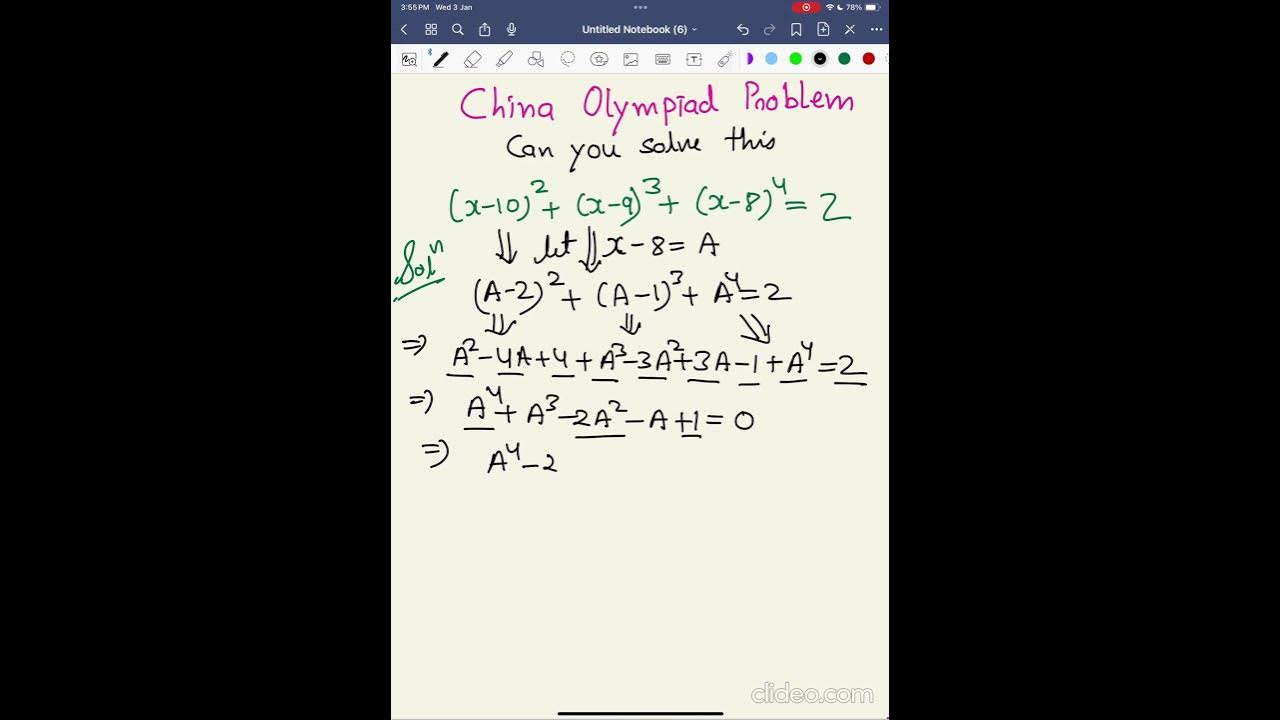 3:55 PM Wed 3 Jan
78%
Untitled Notebook (6)
China Olympiad Problem
Can you solve this
(x-10)² + (x-9)³ + (x-8)⁴ = 2
Solⁿ
let x-8 = A
(A-2)² + (A-1)³ + A⁴ = 2
⇒ A² - 4A + 4 + A³ - 3A² + 3A - 1 + A⁴ = 2
⇒ A⁴ + A³ - 2A² - A + 1 = 0
⇒ A⁴ - 2
clideo.com